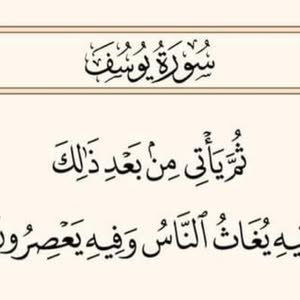 سُورَةُ يُوسُفَ
ثُمَّ يَأْتِى مِنۢ بَعْدِ ذَٰلِكَ
يُغَاثُ ٱلنَّاسُ وَفِيهِ